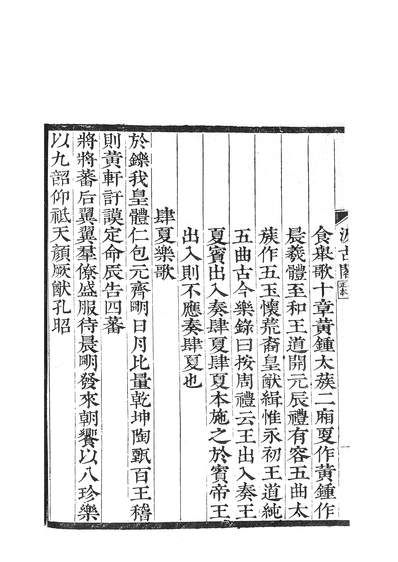 汲古閣
食舉歌十章黃鍾太族二廂夏作黃鍾作
晨羲體至和王道開元辰禮有容五曲太
族作五玉懷荒裔皇猷緝惟永初王道純
五曲古今樂錄曰按周禮云王出入奏王
夏賓出入奏肆夏肆夏本施之於賓帝王
出入則不應奏肆夏也
肆夏樂歌
於鑠我皇體仁包元齊明日月比量乾坤陶甄百王稽
則黃軒訏謨定命辰告四蕃
將將蕃后翼翼羣僚盛服待晨明發來朝饗以八珍樂
以九韶仰祗天顏厥猷孔昭